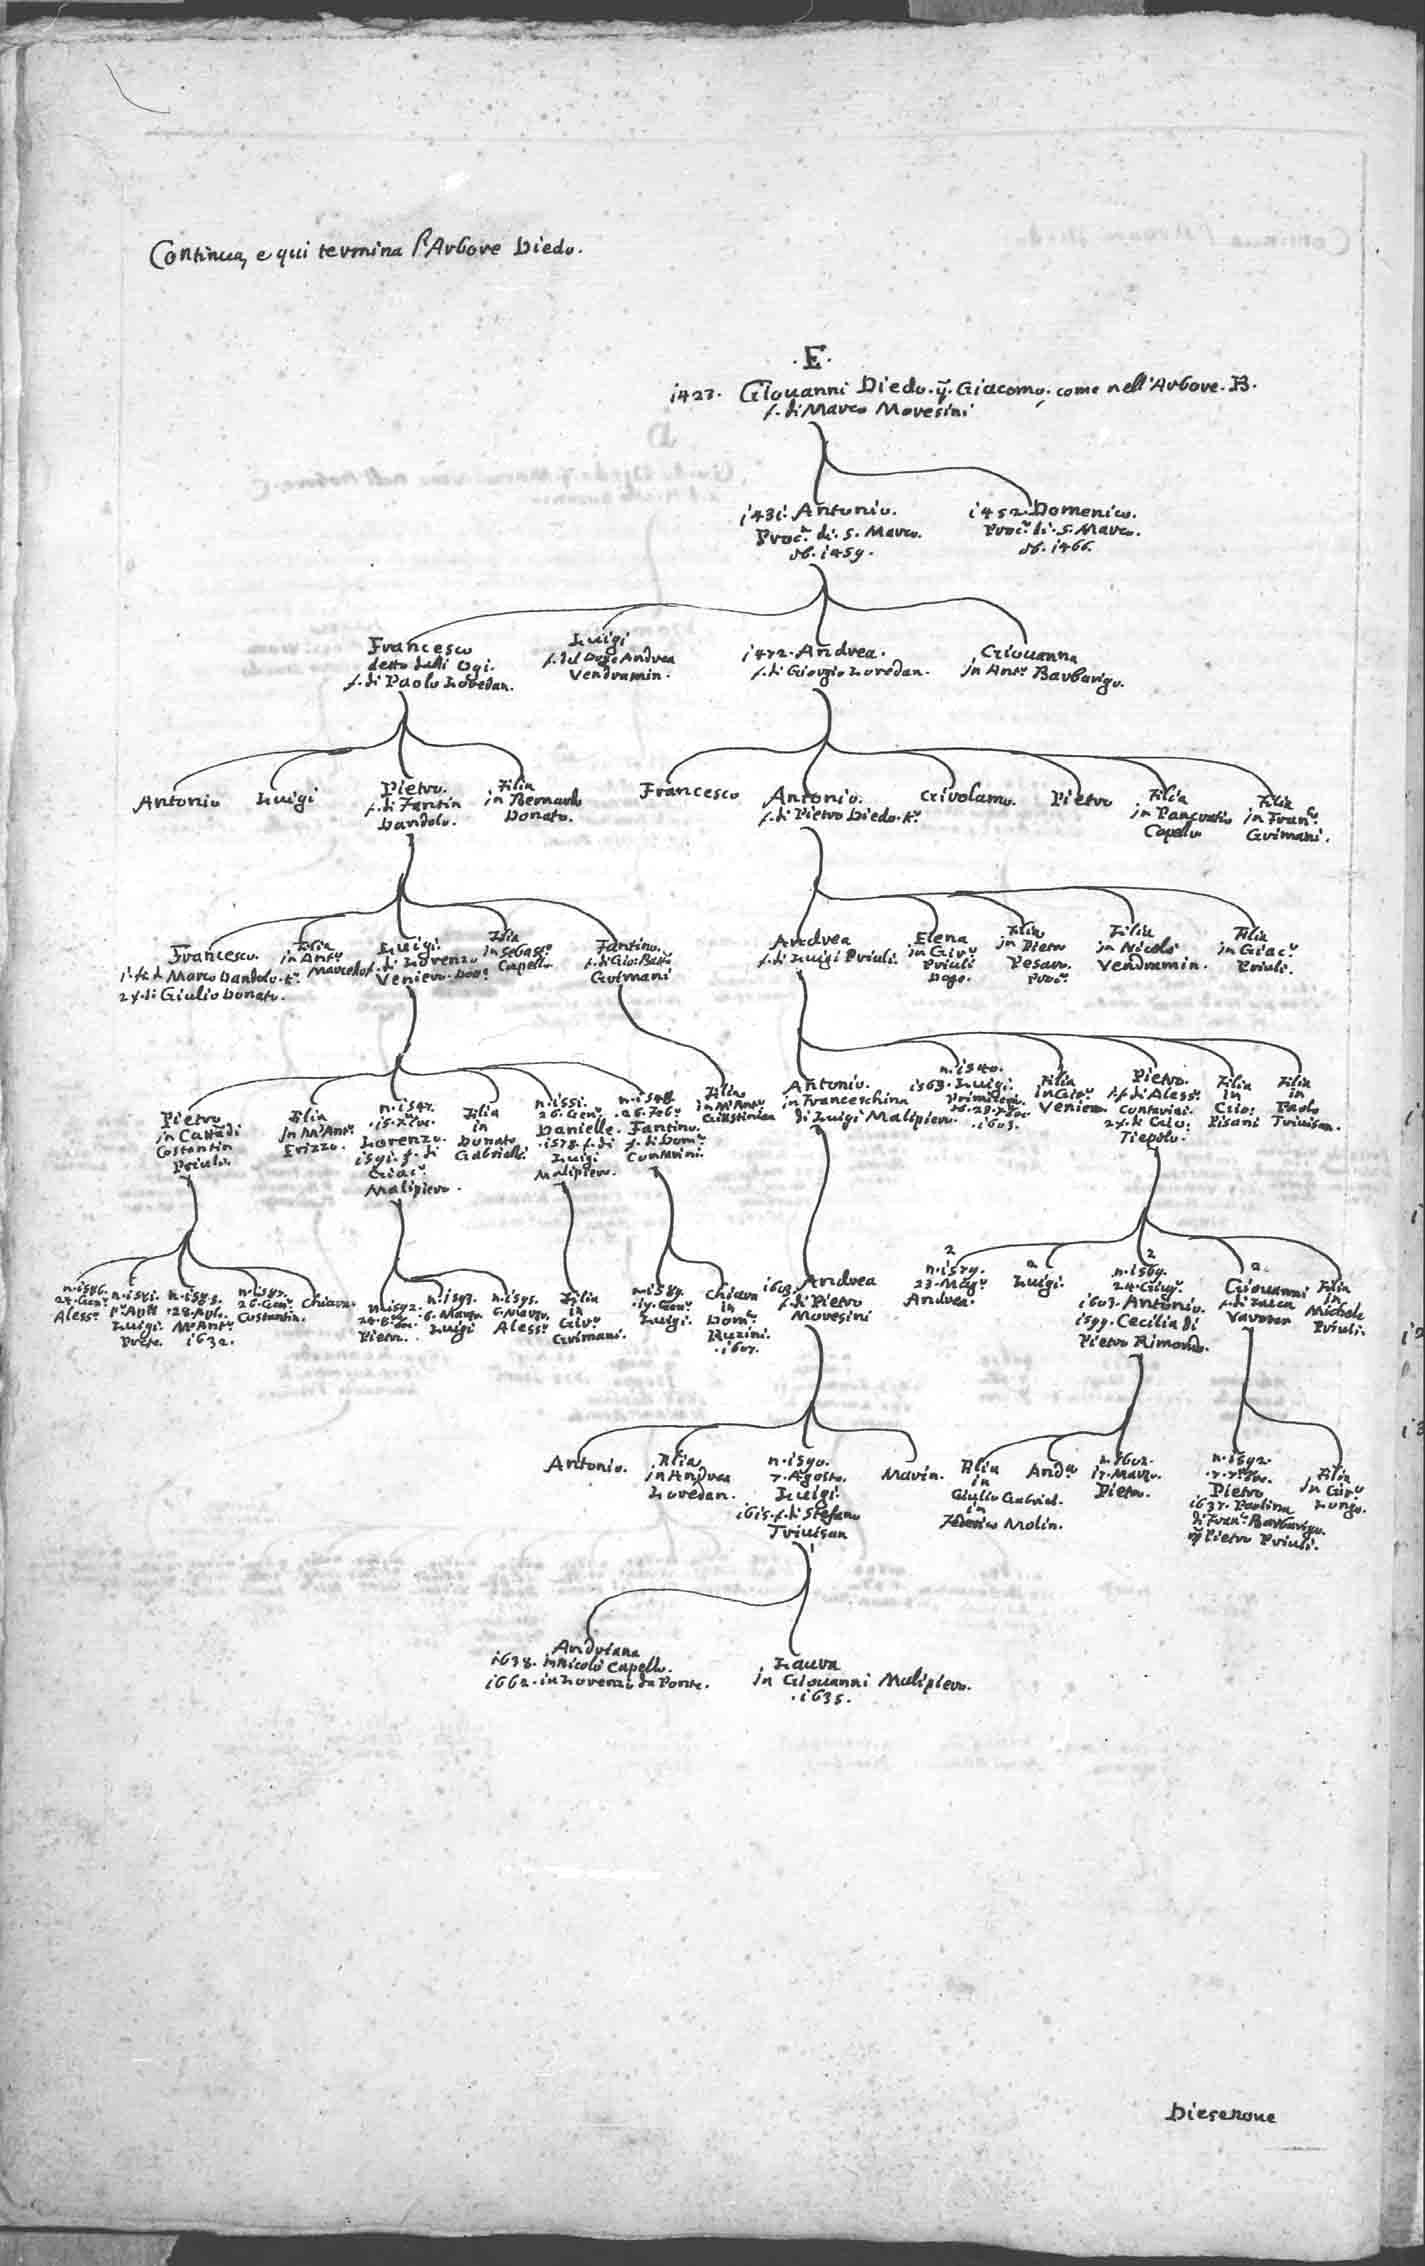 Continua, e qui termina l'Arbore Diedo.
.E.
1427. Giovanni Diedo. q. Giacomo. come nell'Arbore. B.
f. di Marco Moresini
1431. Antonio.
Proc.r di. S. Marco.
ob. 1459.
1452. Domenico.
Proc.r di. S. Marco.
ob. 1466.
Francesco
detto dalli Ogi.
f. di Paolo Loredan.
Luigi
f. del Doge Andrea
Vendramin.
1472. Andrea.
f. di Giorgio Loredan.
Giovanna
in Ant.o Barbarigo.
Antonio
Luigi
Pietro.
f. di Fantin
Dandolo.
Filia
in Bernardo
Donato.
Francesco
Antonio.
f. di Pietro Diedo. K.r
Girolamo.
Pietro
Filia
in Pancratio
Capello
Filia
in Fran.co
Grimani.
Francesco.
1. f. di Marco Dandolo. K.r
2 f. di Giulio Donato.
Filia
in Ant.o
Marcello
Luigi.
f. di Lorenzo
Venier. Dog.e
Filia
in Sebast.o
Capello
Fantino.
f. di Gio: Batta
Grimani
Andrea
f. di Luigi Priuli.
Elena
in Gir.o
Priuli
Doge.
Filia
in Pietro
Pesaro.
Proc.r
Filia
in Nicolò
Vendramin.
Filia
in Giac.o
Priuli.
Pietro
in Catta di
Costantin
Priuli.
Filia
in M. Ant.o
Erizzo.
n. 1547.
Lorenzo.
1591. f. di
Giac.o
Malipiero.
Filia
in
Donato
Gabrielli
n. 1551.
26. Gen.o
Danielle.
1578. f. di
Luigi
Malipiero.
n. 1548.
26. Feb.o
Fantino.
f. di Dom.o
Contarini.
Filia
in M. Ant.o
Giustinian
Antonio.
in Franceschina
di Luigi Malipiero.
n. 1540.
1563. Luigi.
Primicerio.
1603.
Filia
in Gio.
Venier.
Pietro.
1 f. di Aless.o
Contarini.
2 f. di
Tiepolo.
Filia
in
Gio:
Pisani
Filia
in
Paolo
Trivisan.
n. 1586.
24. Gen.o
Aless.o
n. 1581.
Luigi.
Prete.
n. 1585.
28. Apl.
M. Ant.o
1632.
n. 1587.
26. Gen.o
Costantin.
Chiara.
n. 1592.
Pietro.
n. 1593.
6. Marzo.
Luigi
n. 1595.
6. Marzo.
Aless.o
Filia
in
Gir.o
Grimani.
n. 1589.
19. Gen.o
Luigi.
Chiara
in
Dom.o
Ruzini.
1607.
1603. Andrea
f. di Pietro
Moresini
2
n. 1579.
23. Mag.o
Andrea.
2
Luigi.
2
n. 1569.
24. Giug.o
1603. Antonio.
1599. Cecilia di
Pietro Rimondo.
2
Giovanni
f. di Luca
Filia
in
Michele
Priuli.
Antonio.
Filia
in Andrea
Loredan.
n. 1590.
7. Agosto.
Luigi
1615. f. di Stefano
Trivisan
Marin.
Filia
in
Giulio Gabriel.
in
Federico Molin.
And.a
n. 1602.
17. Marzo.
Pietro.
n. 1692.
Pietro
1637. Paolina
di Fran.o Barbarigo.
q. Pietro Priuli.
Filia
in Gir.o
Longo.
Andriana
1638. in Nicolò Capello.
1662. in Lorenzo da Ponte.
Laura
in Giovanni Malipiero.
1635.
Dieserove